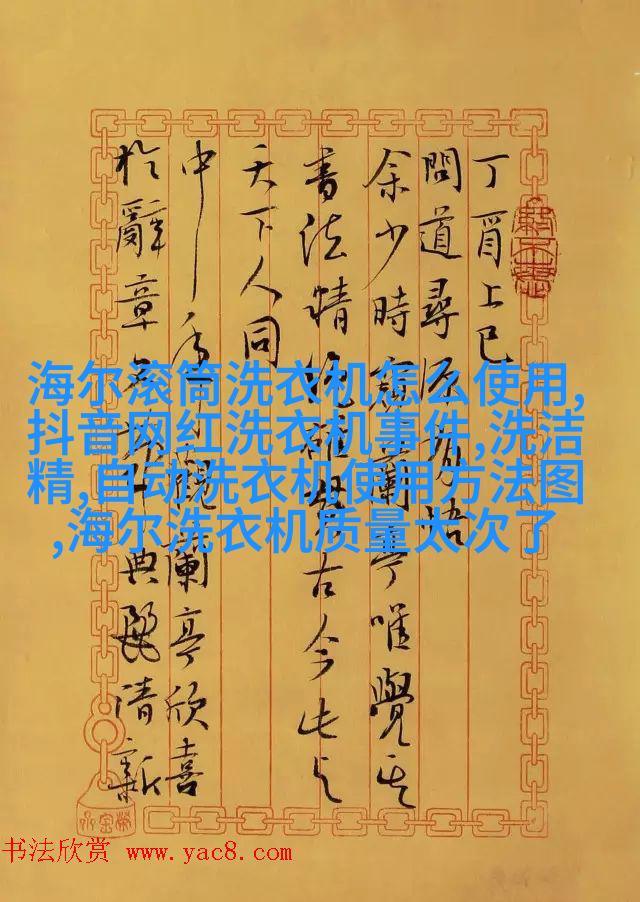 丁酉上巳
問道尋源悟
余少時蘭亭唯覺其
書法精古今与
天下人同
中觀蘭亭欣喜
於辭章典麗清新
海尔滚筒洗衣机怎么使用,
抖音网红洗衣机事件,洗洁
精,自动洗衣机使用方法图
,海尔洗衣机质量太次了
书法欣赏 www.yac8.com